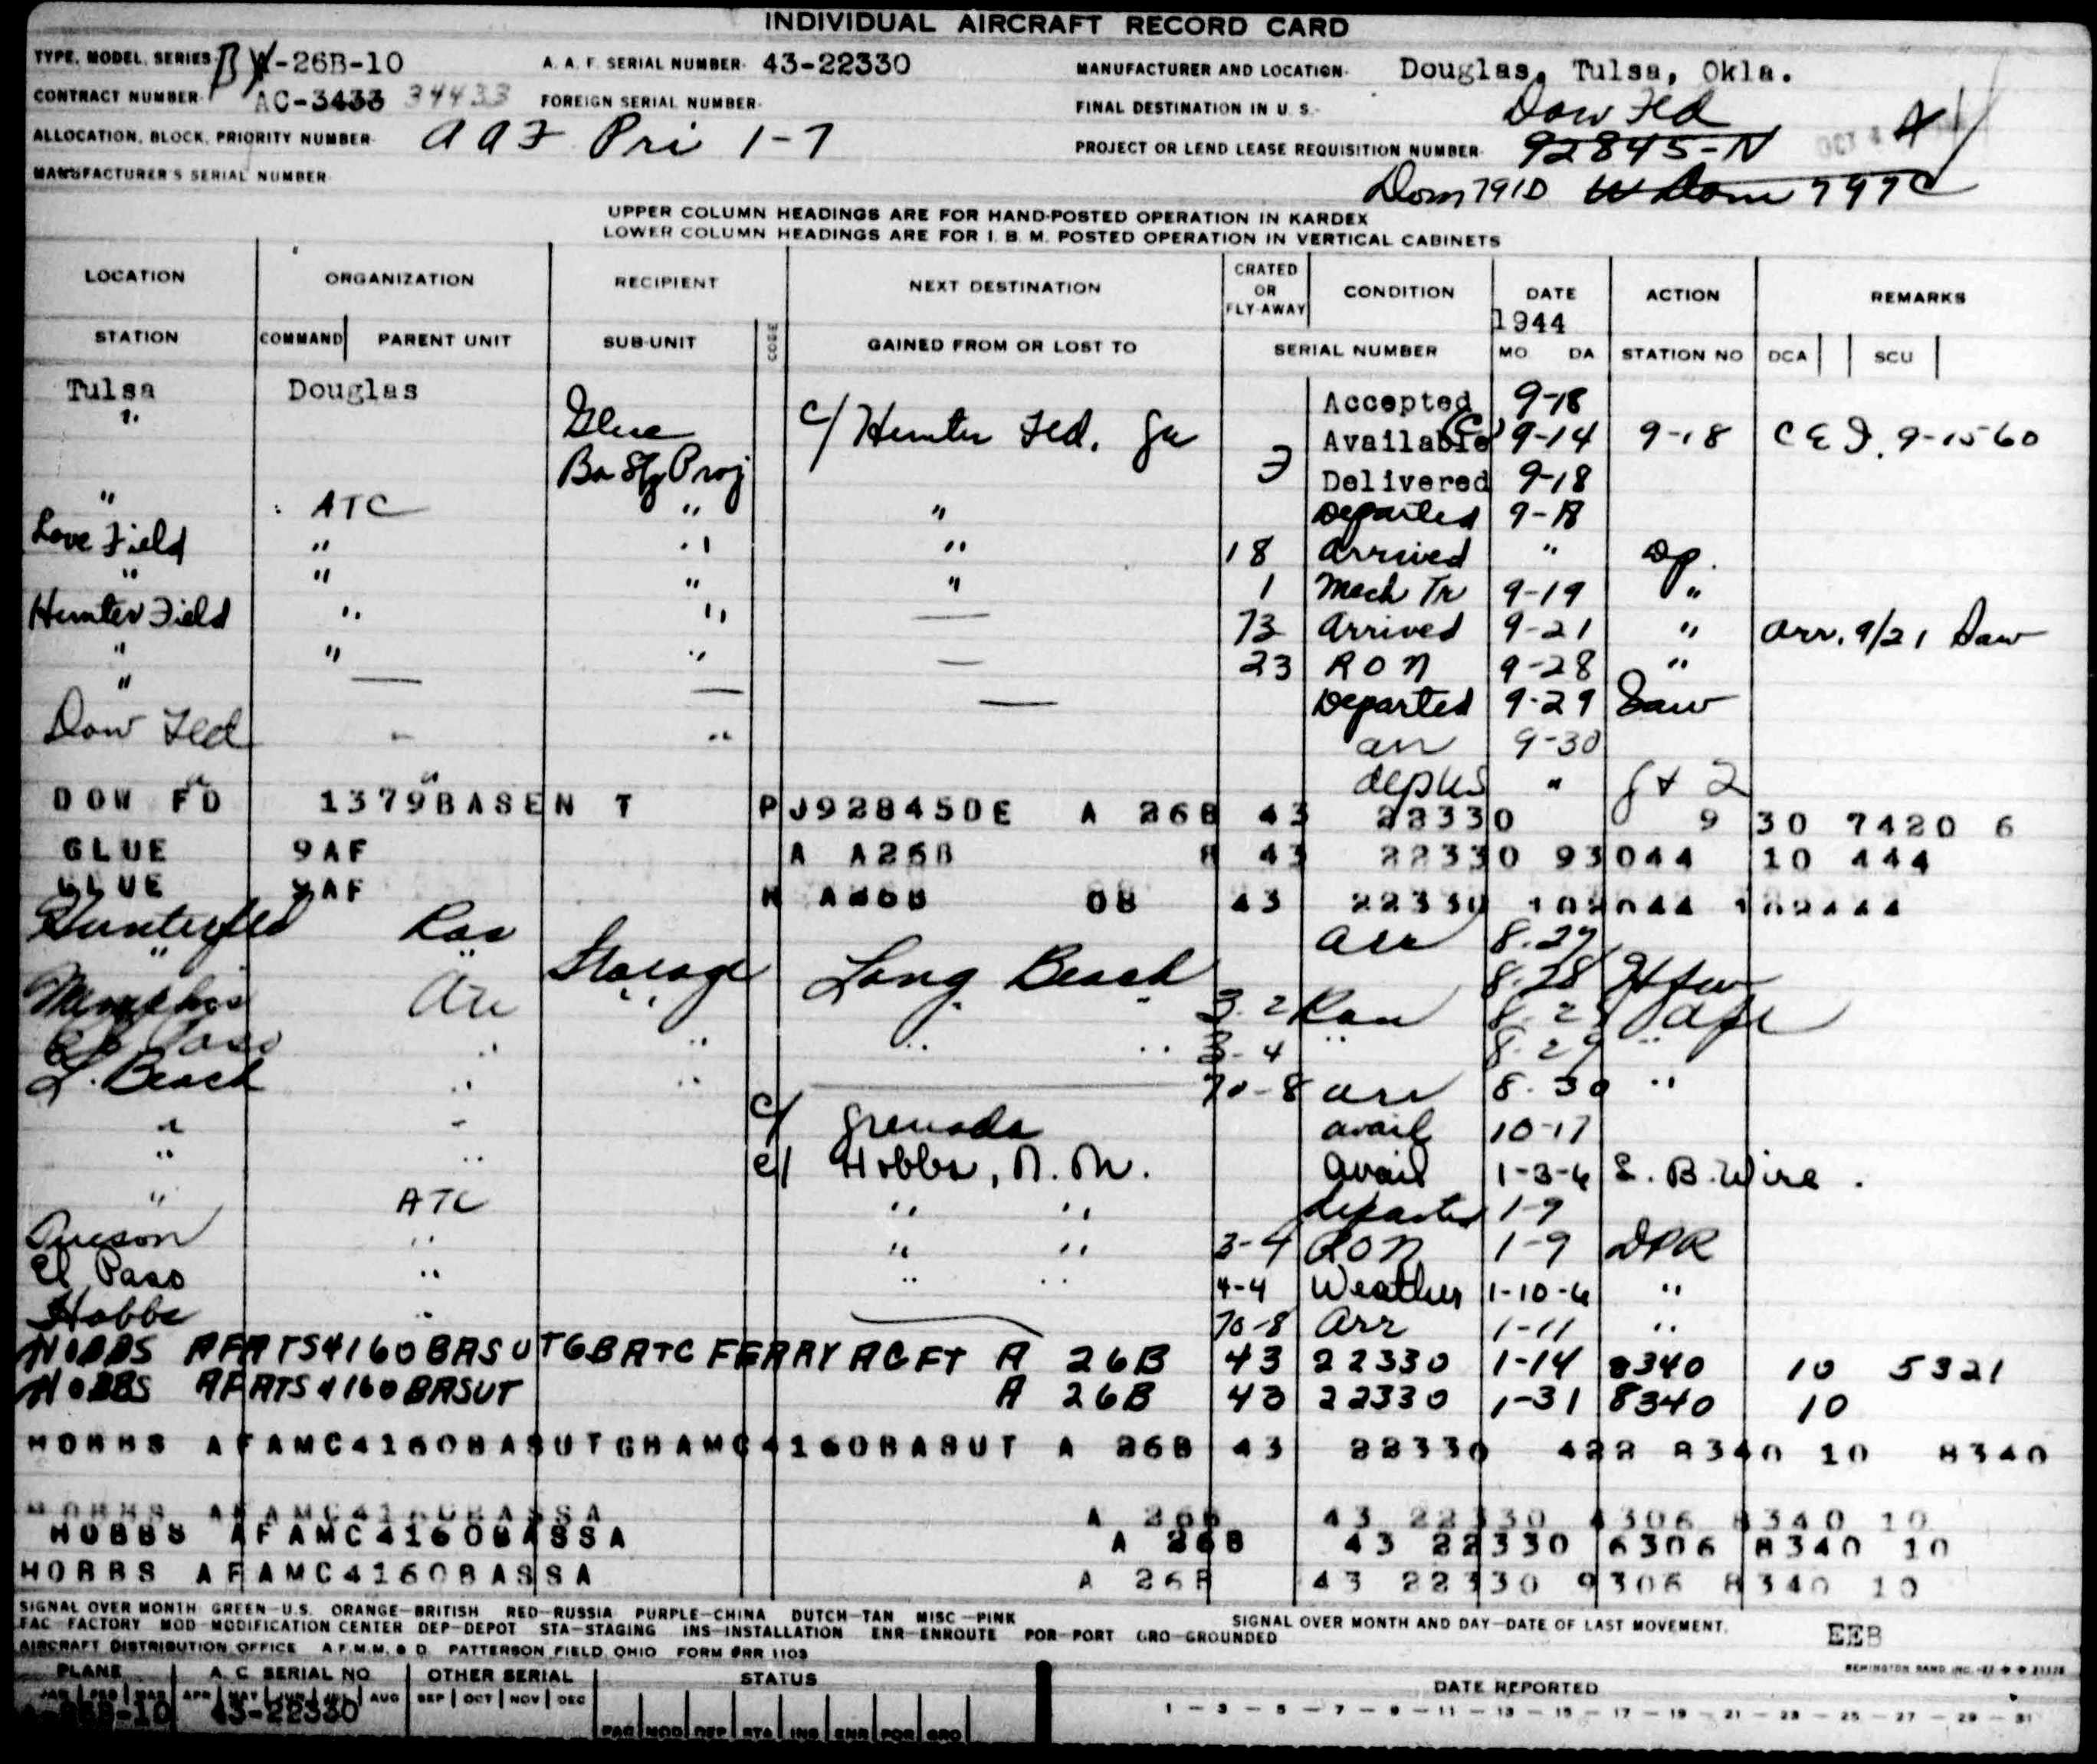 INDIVIDUAL AIRCRAFT RECORD CARD
TYPE, MODEL, SERIES- B A-26B-10 A. A. F. SERIAL NUMBER- 43-22330 MANUFACTURER AND LOCATION- Douglas, Tulsa, Okla.
CONTRACT NUMBER- AC-3433 34433 FOREIGN SERIAL NUMBER- FINAL DESTINATION IN U. S.- Dow Fld
ALLOCATION, BLOCK, PRIORITY NUMBER- AAF Pri 1-7 PROJECT OR LEND LEASE REQUISITION NUMBER- 92845-N OCT 4
MANUFACTURER'S SERIAL NUMBER-
Dom 791D W Dom 797C
UPPER COLUMN HEADINGS ARE FOR HAND-POSTED OPERATION IN KARDEX
LOWER COLUMN HEADINGS ARE FOR I. B. M. POSTED OPERATION IN VERTICAL CABINETS
LOCATION ORGANIZATION RECIPIENT NEXT DESTINATION CRATED OR FLY-AWAY CONDITION DATE ACTION REMARKS
1944
STATION COMMAND PARENT UNIT SUB-UNIT CODE GAINED FROM OR LOST TO SERIAL NUMBER MO DA STATION NO DCA SCU
Tulsa Douglas Accepted 9-18
" Glue c/ Hunter Fld. Ga Available (C) 9-14 9-18 C E D. 9-15-60
Proj F Delivered 9-18
" ATC " " Departed 9-18
Love Field " " " 18 Arrived " Dp.
" " " " 1 Mech Tr 9-19 "
Hunter Field " " — 73 Arrived 9-21 " Arr. 9/21
" " " — 23 RON 9-28 "
" — — — Departed 9-29
Dow Fld " " arr 9-30
" " "
DOW FD 1379BASEN T P J92845DE A 26B 43 22330 9 30 7420 6
GLUE 9AF A A26B 43 22330 93044 10 444
GLUE 9AF A26B 08 43 22330
Hunterfld Ron arr 8-27
" " Storage Long Beach 8-28
Memphis " " " 3-2 Ron
El Paso " " " " 3-4 " 8-29 "
L. Beach " " — 70-8 arr 8-30 "
" " c/ Grenada avail 10-17
" " c/ Hobbs, N. M. avail 1-3-6 L. B. Wire.
" ATC " " departed 1-9
Tucson " " " 3-4 RON 1-9 DPR
El Paso " " " 4-4 Weather 1-10-6 "
Hobbs " — 70-8 Arr 1-11 "
HOBBS AFATS4160BASUTGBATC FERRY ACFT A 26B 43 22330 1-14 8340 10 5321
HOBBS AFATS4160BASUT A 26B 43 22330 1-31 8340 10
HOBBS AFAMC4160BASUTGBAMC4160BASUT A 26B 43 22330 422 8340 10 8340
HOBBS AFAMC4160BASSA A 26B 43 22330 4306 8340 10
HOBBS AFAMC4160BASSA A 26B 43 22330 6306 8340 10
HOBBS AFAMC4160BASSA A 26B 43 22330 9306 8340 10
SIGNAL OVER MONTH GREEN—U.S. ORANGE—BRITISH RED—RUSSIA PURPLE—CHINA DUTCH—TAN MISC—PINK SIGNAL OVER MONTH AND DAY—DATE OF LAST MOVEMENT.
FAC FACTORY MOD-MODIFICATION CENTER DEP-DEPOT STA-STAGING INS-INSTALLATION ENR-ENROUTE POR-PORT GRO-GROUNDED EEB
AIRCRAFT DISTRIBUTION OFFICE A.F.M.M. & D. PATTERSON FIELD, OHIO FORM PRR 1103
REMINGTON RAND INC.
PLANE A. C. SERIAL NO OTHER SERIAL STATUS DATE REPORTED
JAN FEB MAR APR MAY JUN JUL AUG SEP OCT NOV DEC
A-26B-10 43-22330 1 — 3 — 5 — 7 — 9 — 11 — 13 — 15 — 17 — 19 — 21 — 23 — 25 — 27 — 29 — 31
FAC MOD DEP STA INS ENR POR GRO